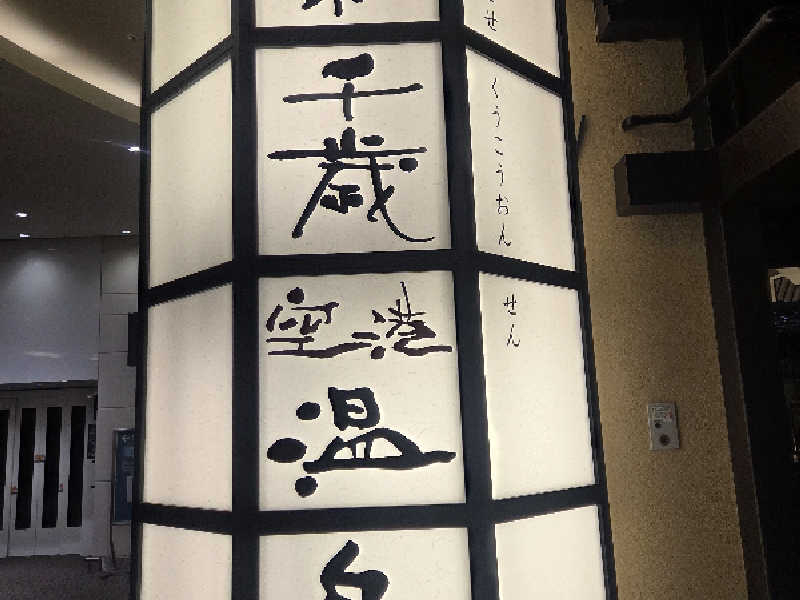 千歳
空港
温泉
せ
くうこうおん
せん